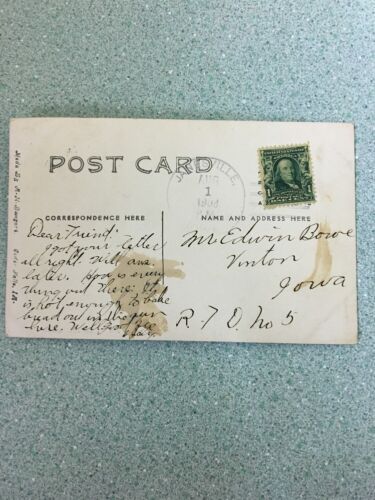 POST CARD
AUG
1
CORRESPONDENCE HERE
NAME AND ADDRESS HERE
Dear Friend:
I got your letter
all right. Will ans.
later. How is every
thing out there? It
is not enough to bake
bread on in the sun
here. Well
Mr Edwin Bowe
Vinton
Iowa
R. F. D. No 5